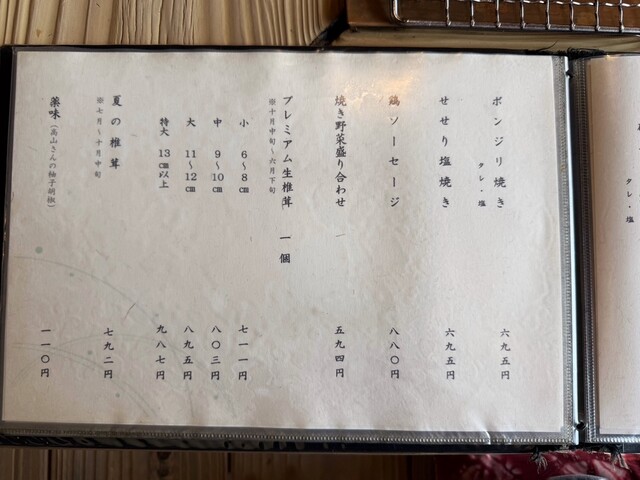 ボンジリ焼き
タレ・塩
六九五円
せせり塩焼き
六九五円
鶏ソーセージ
八八〇円
焼き野菜盛り合わせ
五九四円
プレミアム生椎茸 一個
※十月中旬～六月下旬
小 6～8㎝
七一一円
中 9～10㎝
八〇三円
大 11～12㎝
八九五円
特大 13㎝以上
九八七円
夏の椎茸
※七月～十月中旬
七九二円
薬味(高山さんの柚子胡椒)
一一〇円
タレ・塩